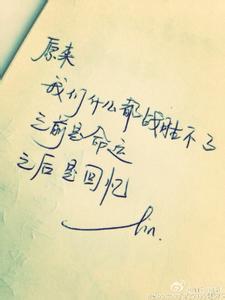 原来
我们什么都战胜不了
之前是命运
之后是回忆
lin.